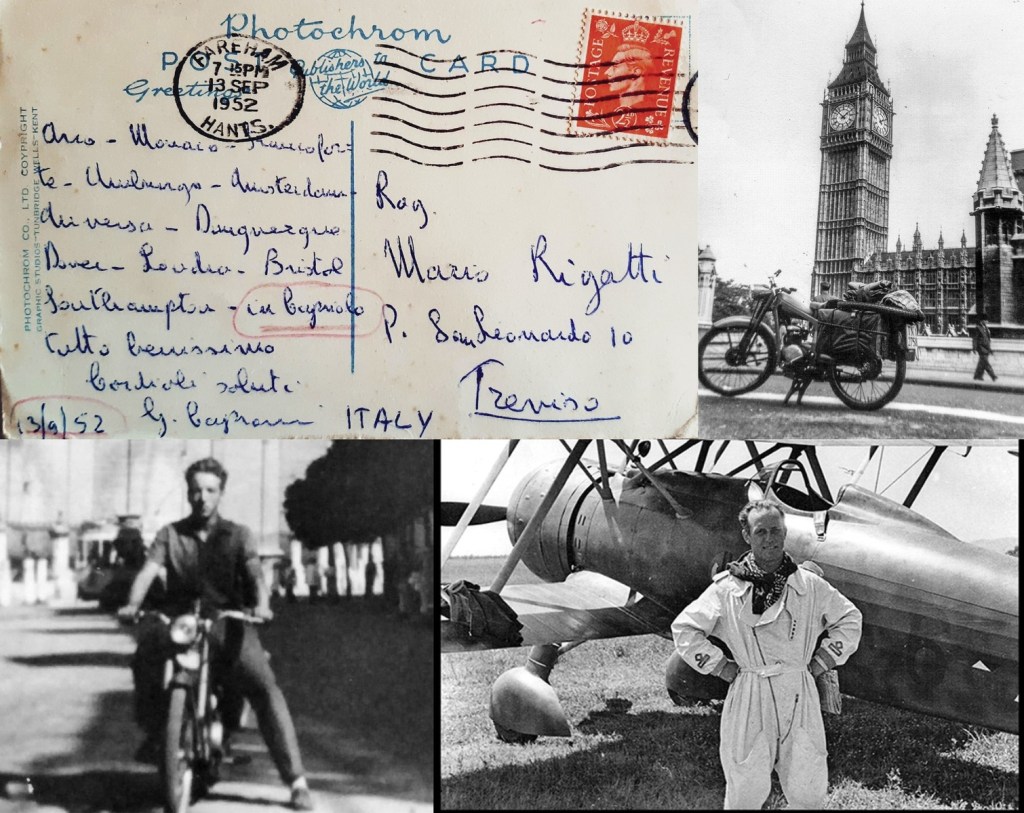 Photochrom
POST CARD
Publishers to
the World
Greetings
FAREHAM
7-15PM
13 SEP
1952
HANTS.
POSTAGE
REVENUE
2½D
PHOTOCHROM CO., LTD. COPYRIGHT
GRAPHIC STUDIOS-TUNBRIDGE WELLS-KENT
Arco - Monaco - Francofor-
te - Amburgo - Amsterdam -
Anversa - Dunquerque
Dover - Londra - Bristol
Southampton - in Capriolo
tutto benissimo
Cordiali saluti
13/9/52
Rag.
Mario Rigatti
P. San Leonardo 10
Treviso
ITALY